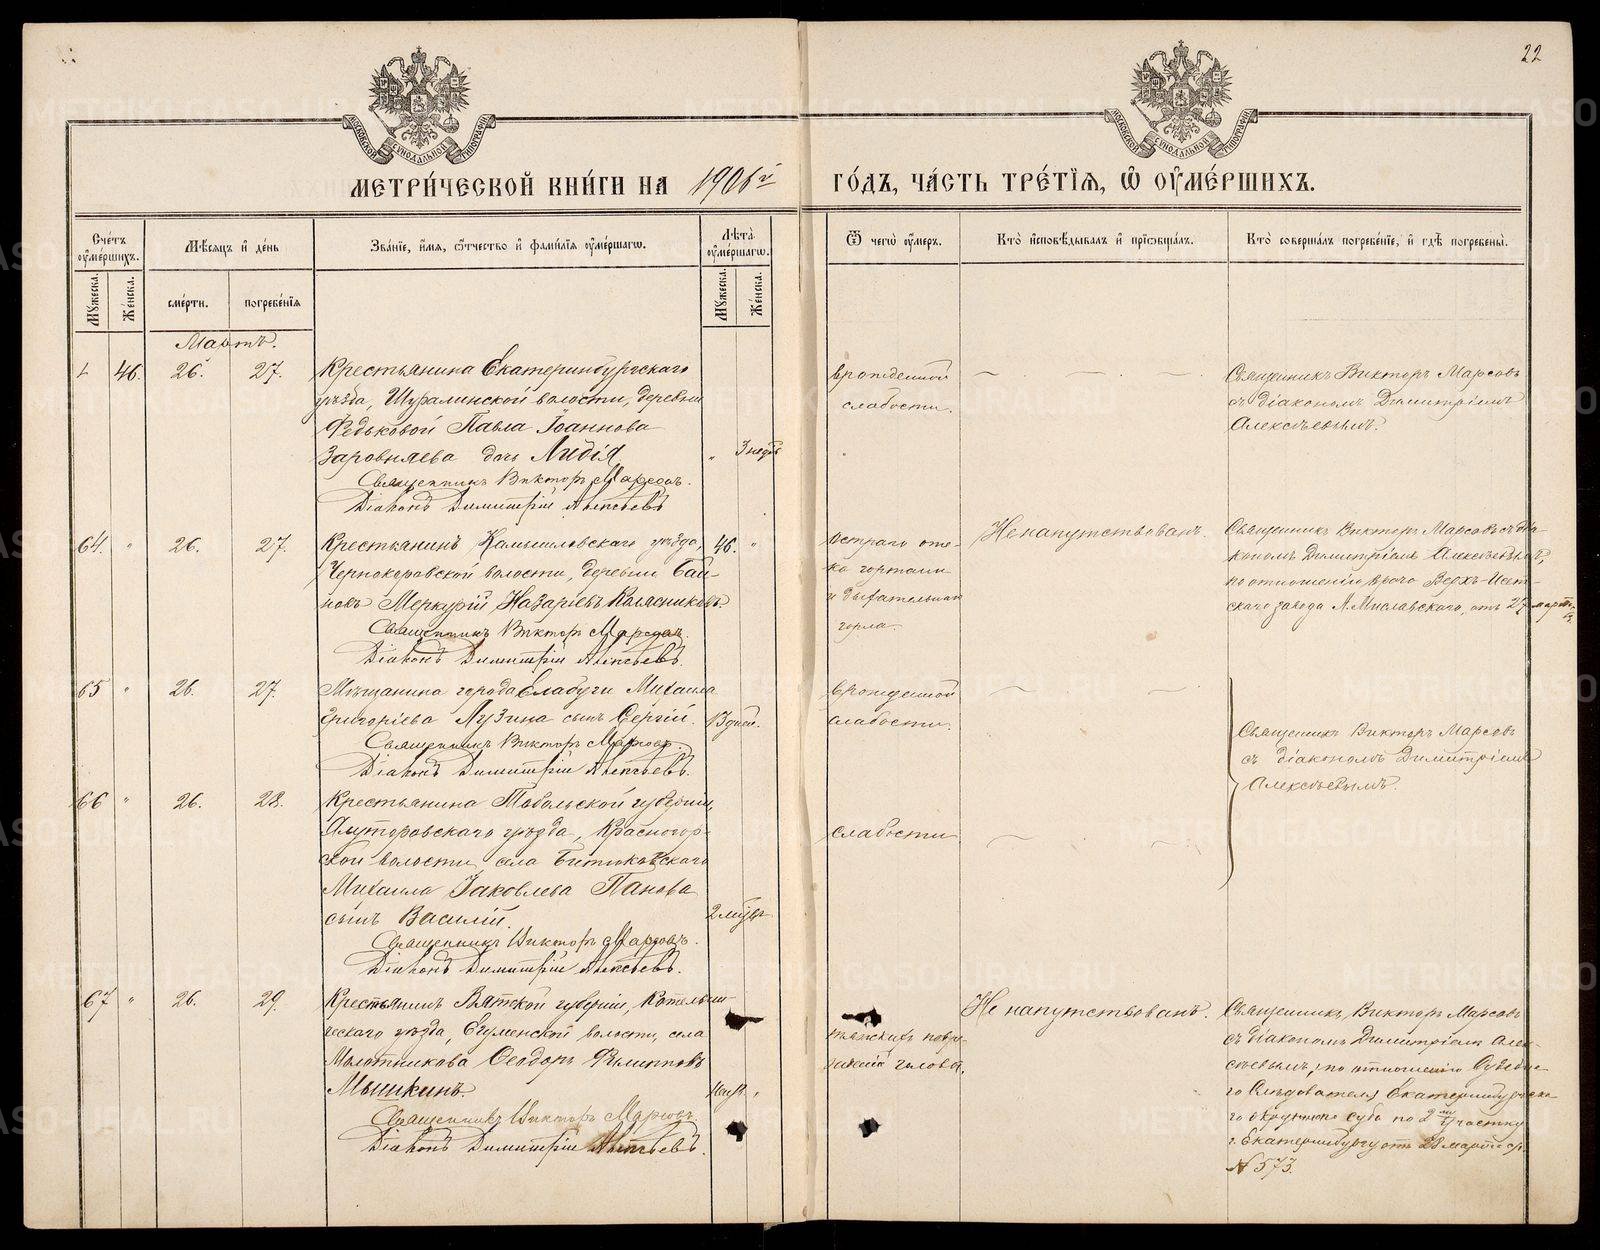 22
МЕТРИ́ЧЕСКОЙ КНИ́ГИ НА 1906й ГО́ДЪ, ЧА́СТЬ ТРЕ́ТІѦ, Ѽ ОУ҆МЕ́РШИХЪ.
Сче́тъ оу҆ме́ршихъ.
Мꙋжеска.
Же́нска.
Мѣ́сяцъ и҆ де́нь
сме́рти.
погребе́нїѧ
Зва́нїе, и҆́мѧ, ѻ҆́тчество и҆ фами́лїѧ оу҆ме́ршагѡ.
Лѣ́та оу҆ме́ршагѡ.
Мꙋжеска.
Же́нска.
Ѿ чегѡ̀ оу҆́меръ.
Кто̀ и҆сповѣ́дывалъ и҆ прїѻбща́лъ.
Кто̀ соверша́лъ погребе́нїе, и҆ гдѣ̀ погребены̀.
Мартъ.
46. 26. 27.
Крестьянина Екатеринбургскаго
уѣзда, Шуралинской волости, деревни
Федьковой Павла Іоаннова
Заровняева дочь Лидія
Священникъ Викторъ Марсовъ.
Діаконъ Димитрій Алексѣевъ
" 3 недѣ
врожденной
слабости.
Священникъ Викторъ Марсовъ
съ діакономъ Димитріемъ
Алексѣевымъ.
64. " 26. 27.
Крестьянинъ Камышловскаго уѣзда,
Чернокоровской волости, деревни Бай-
нокъ Меркурій Назаріевъ Колясниковъ.
Священникъ Викторъ Марсовъ.
Діаконъ Димитрій Алексѣевъ.
46. "
остраго оте-
ка гортани
и дыхательнаго
горла.
Не напутствованъ.
Священникъ Викторъ Марсовъ съ діа-
кономъ Димитріемъ Алексѣевымъ,
по отношенію врача Верхъ-Исет-
скаго завода А. Миславскаго, отъ 27 марта
65 " 26. 27.
Мѣщанина города Елабуги Михаила
Григоріева Лузина сынъ Сергій.
Священникъ Викторъ Марсовъ.
Діаконъ Димитрій Алексѣевъ.
13 дней.
врожденной
слабости.
Священникъ Викторъ Марсовъ
съ діакономъ Димитріемъ
Алексѣевымъ.
66 " 26. 28.
Крестьянина Тобольской губерніи,
Ялуторовскаго уѣзда, Красногор-
ской волости, села
Михаила Іаковлева Панова
сынъ Василій.
Священникъ Викторъ Марсовъ.
Діаконъ Димитрій Алексѣевъ.
слабости
67 " 26. 29.
Крестьянинъ Вятской губерніи, Котельни-
ческаго уѣзда, волости, села
Молотникова Ѳеодоръ Филипповъ
Мышкинъ.
Священникъ Викторъ Марсовъ.
Діаконъ Димитрій Алексѣевъ.
головы.
Не напутствованъ.
Священникъ Викторъ Марсовъ
съ діакономъ Димитріемъ Алек-
сѣевымъ, по отношенію Судебна-
го Слѣдователя Екатеринбургска-
го Окружнаго Суда по 2му участку
г. Екатеринбурга отъ 28 марта
№ 573.
METRIKI.GASO-URAL.RU